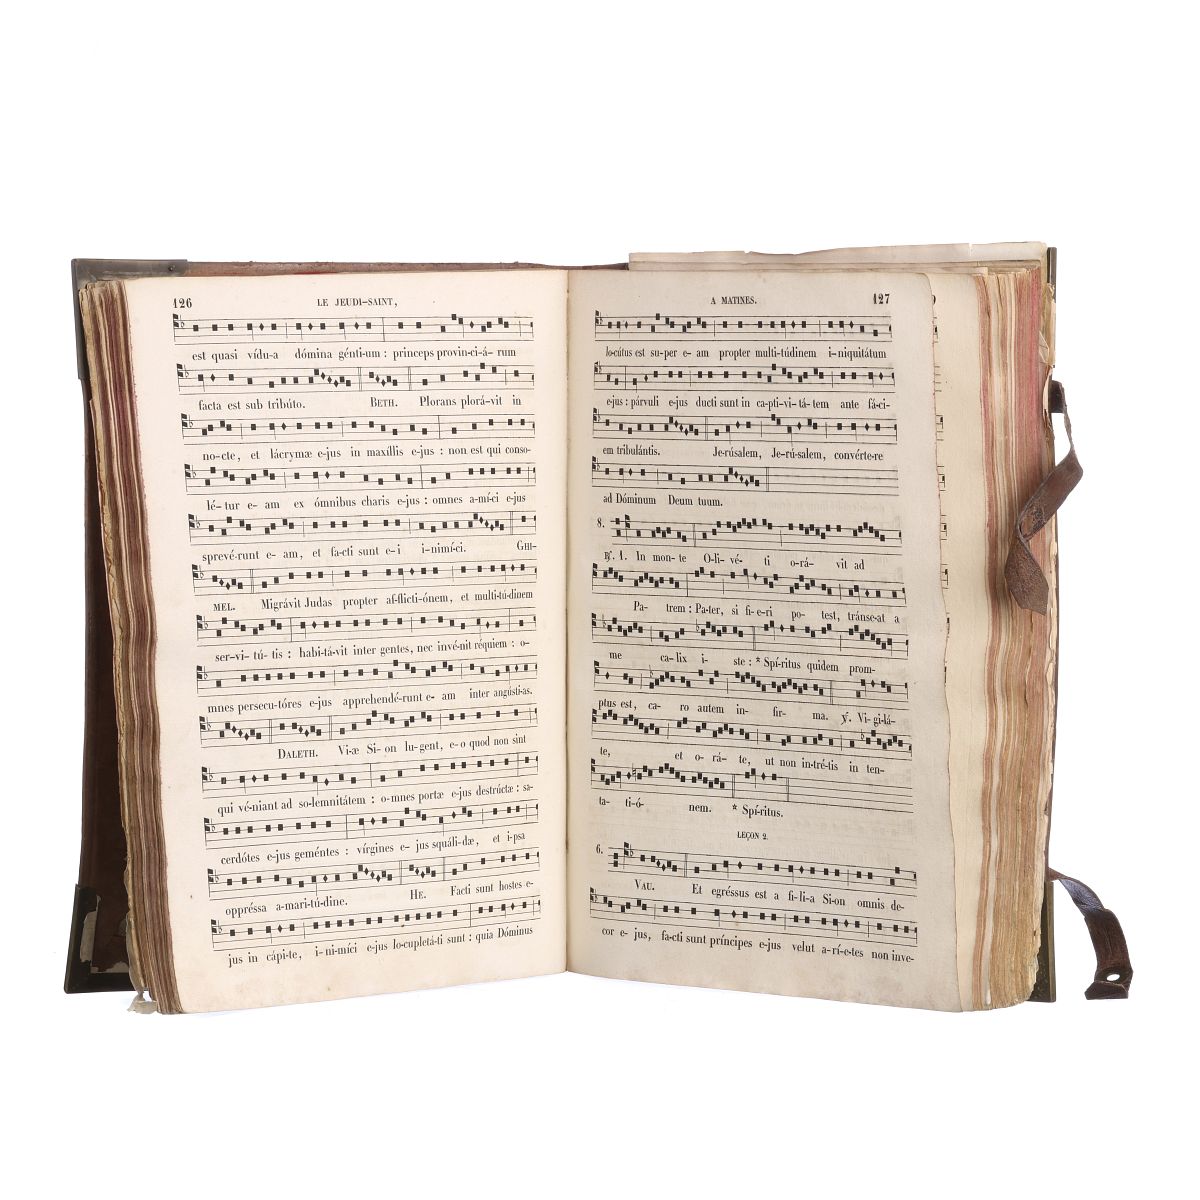 126
LE JEUDI-SAINT,
est quasi vídu-a dómina génti-um : princeps provin-ci-á-rum
facta est sub tribúto. BETH. Plorans plorá-vit in
no-cte, et lácrymæ e-jus in maxíllis ejus : non est qui conso-
lé-tur e-am ex ómnibus charis e-jus : omnes a-mí-ci ejus
sprevé-runt e-am, et fa-cti sunt e-i i-nimí-ci. GHI-
MEL. Migrávit Judas propter af-flicti-ónem, et multi-tú-dinem
ser-vi-tú-tis : habi-tá-vit inter gentes, nec invé-nit réquiem : o-
mnes persecu-tóres e-jus apprehendé-runt e-am inter angústi-as.
DALETH. Vi-æ Si-on lu-gent, e-o quod non sint
qui vé-niant ad so-lemnitátem : o-mnes portæ e-jus destrúctæ : sa-
cerdótes e-jus geméntes : vírgines e-jus squáli-dæ, et i-psa
oppréssa a-mari-tú-dine. HE. Facti sunt hostes e-
jus in cápi-te, i-ni-míci e-jus lo-cupletá-ti sunt : quia Dóminus
A MATINES.
127
lo-cútus est su-per e-am propter multi-túdinem i-niquitátum
ejus : párvuli e-jus ducti sunt in ca-pti-vi-tá-tem ante fá-ci-
em tribulántis. Je-rúsalem, Je-rú-salem, convérte-re
ad Dóminum Deum tuum.
8.
℟. 1. In mon-te O-li-vé-ti o-rá-vit ad
Pa-trem : Pa-ter, si fi-e-ri po-test, tránse-at a
me ca-lix i-ste : * Spí-ritus quidem prom-
ptus est, ca-ro autem in-fir-ma. ℣. Vi-gi-lá-
te, et o-rá-te, ut non in-tré-tis in ten-
ta-ti-ó-nem. * Spí-ritus.
LEÇON 2.
6.
VAU. Et egréssus est a fi-li-a Si-on omnis de-
cor e-jus, fa-cti sunt príncipes e-jus velut a-rí-e-tes non inve-